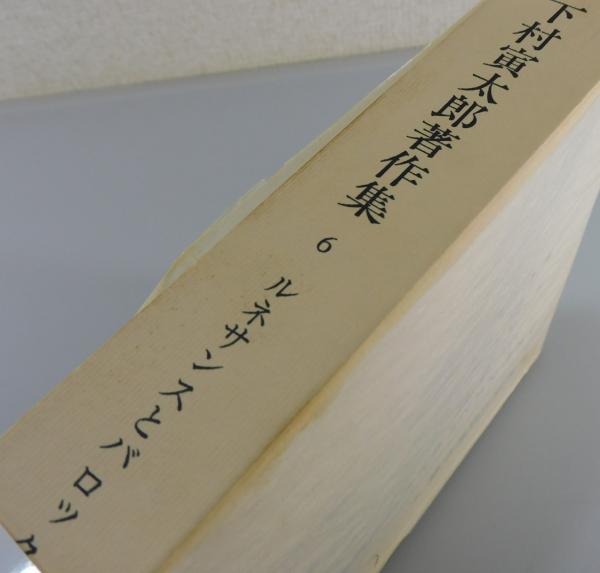 下村寅太郎著作集 6 ルネサンスとバロック